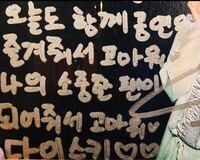 오늘도 함께 공연을
즐겨줘서 고마워
나의 소중한 팬이
되어줘서 고마워♡
다이스키♡♡